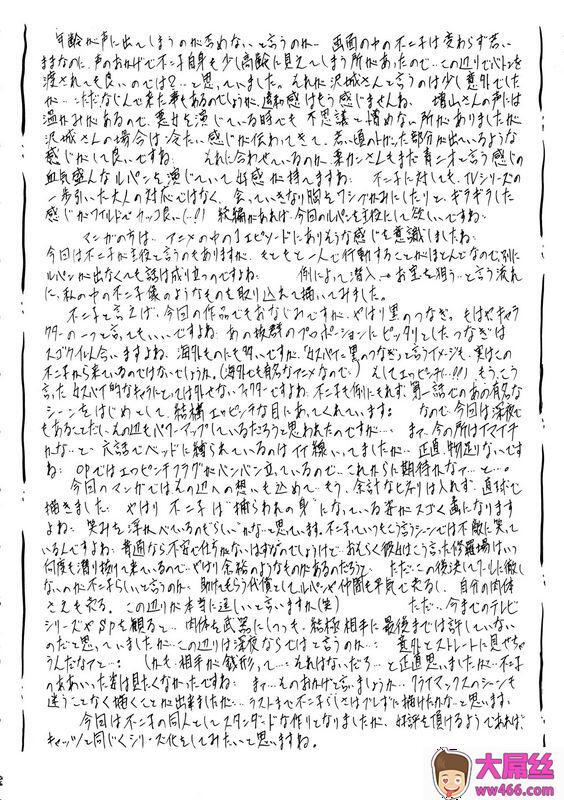 年齢が声に出てしまうのが否めないと言うのか… 画面の中の不二子は変わらず若い
ままなのに、声のおかげで不二子自身も少し高齢に見えてしまう所があったので…この辺りでバトンを
渡されても良いのでは?…と思っていました。それが沢城さんと言うのは少し意外でした
が…ただなじんで来た事もあるのでしょうが、違和感はもう感じませんね。増山さんの声には
温かみがあるので、悪女を演じている時でも不思議と憎めない所がありましたが
沢城さんの場合は冷たい感じが伝わってきて、若い頃のトガった部分が出ているような
感じがして良いですね。 それに合わせているのか、栗カンさんもまた青二才…と言う感じの
血気盛んなルパンを演じていて好感が持てますね。 不二子に対しても、TVシリーズの
一歩引いた大人の対応ではなく、会っていきなり胸をワシづかみにしたりと、ギラギラした
感じがワイルドでカッコ良い(…!!) 続編があれば今回のルパンを主役にして欲しいですね。
マンガの方は… アニメの中の1エピソードにありそうな感じを意識しましたね。
今回は不二子が主役と言うのもありますが、もともと一人で行動することがほとんどなので、別に
ルパンが出なくても話は成り立つのですよね。 例によって潜入→お宝を狙う…と言う流れ
に、私の中の不二子像のようなものも取り込んで描いてみました。
不二子と言えば、今回の作品でもおなじみですが、やはり黒のつなぎ。もはやキャラ
クターの一つと言ってもいいですよね。あの抜群のプロポーションにピッタリとしたつなぎは
スゴクイイ似合いますよね。海外ものにも多いですが、女スパイに黒のつなぎって言うイメージも、実はこの
不二子から来ているのではないでしょうか。(海外でも有名なアニメなので) えてエッピンチに(…!!) もう、こう
言った女スパイ的なキャラにとっては外せないファクターですよね。不二子も例にもれず、第一話でのあの有名な
シーンをはじめとして、結構エッピンチな目にあってくれています。 なので、今回は深夜で
もあることだし、その辺もパワーアップしているだろうと思われたのですが… まァ、今の所はイマイチ
かな…と。六話でベッドに縛られているのは イイ線いってましたが…正直、物足りないです
ね。OPではエロピンチフラグがバンバン立っているので、これからに期待かなァ…と…。
今回のマンガではその辺への想いも込めて…もう、余計なヒネリは入れず、直球で
描きました。 やはり不二子は"捕らわれの身"になっている姿がスゴク画になります
よね。笑みを浮かべているのもらしいかなと思ています。不二子っていつもこう言うシーンでは不敵に笑って
いるんですよね。普通なら不安で仕方がないはずなのでしょうけど、おそらく彼女はこう言った修羅場はいく
何度も潜り抜けて来ているので…やはり余裕のようなものがあるのだろうと。 ただ…この後決してクールに徹し
ないのが不二子らしいと言うのか、助けてもらう代償としてルパンや仲間を平気で売るし、自分の肉体
さえも売る。この辺りが本当に逞しいと言いますか(笑) ただ…今までのテレビ
シリーズやSPを観ると…肉体を武器にしつつも、結局相手に最後までは許していない
のだと思っていましたが…この辺りは深夜ならではと言うのか…。 意外とストレートに見せちゃ
うんだなァと…。 (しかも相手が銭形って…それはないだろ…と正直思いましたが…不二子
のああいった姿は見たくなかったですね。まァ…そのおかげと言いましょうか…クライマックスのシーンも
違うことなく描くことが出来ましたが…ラストまで不二子らしさはブレずに描けたかな…と思います。
今回は不二子の同人としてスタンダードな作りとなりましたが、好評を頂けるようであれば、
キャッツと同じくシリーズ化をしてみたいと思いますね。
大屌丝
ww466.com